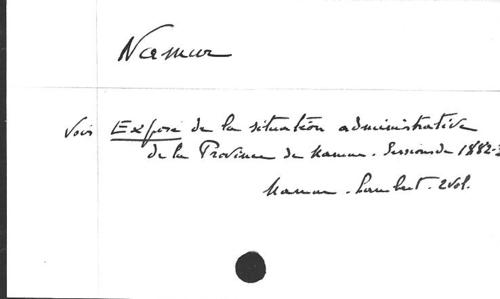 Namur
Voir Exposé de la situation administrative
de la Province de Namur. Sessions de 1882-
Namur. Lambert. 2 vol.